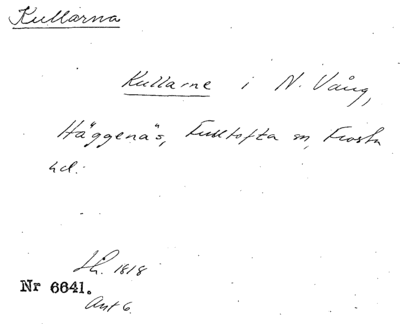 Kullarna
Kullarne i N. Vång,
Häggenäs, Fulltofta sn, Frosta
hd.
Lh. 1818
Nr 6641.
Akt 6.